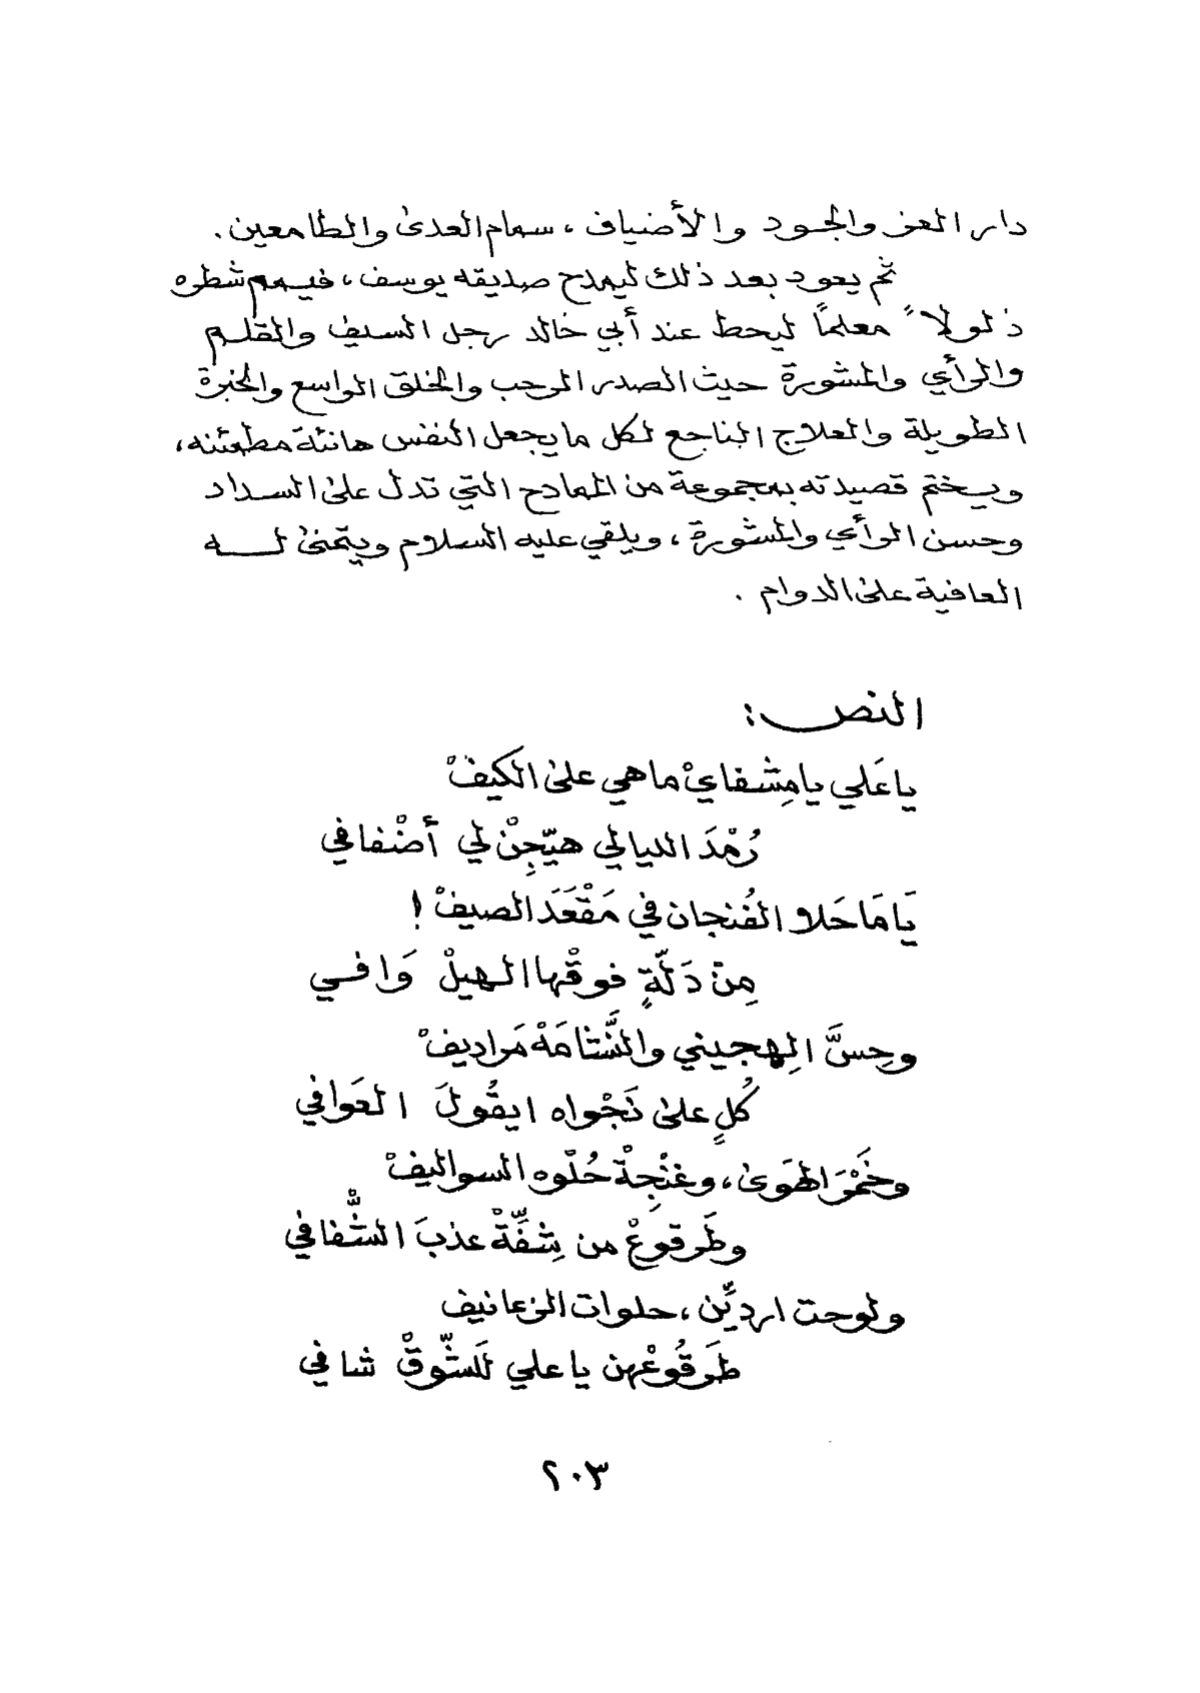 دار العز والجود والأضياف ، سهام العدىٰ والطامعين .
ثم يعود بعد ذلك ليمدح صديقه يوسف ، فييمم شطره
ذلولاً معلماً ليحط عند أبي خالد رجل السيف والقلم
والرأي والمشورة حيث الصدر الرحب والخلق الواسع والخبرة
الطويلة والعلاج الناجع لكل ما يجعل النفس هانئة مطمئنه ،
ويختم قصيدته بمجموعة من المدائح التي تدل علىٰ السداد
وحسن الرأي والمشورة ، ويلقي عليه السلام ويتمنىٰ له
العافية علىٰ الدوام .
النص :
يا عَلي يا مِشفايْ ما هي علىٰ الكيفْ
رُهْدَ الليالي هيّجِنْ لي أضْفافي
يَا مَا حَلا الفُنجان في مَقْعَدَ الصيفْ !
مِنْ دَلّةٍ فوقْها الهيلْ وَافي
وحِسَّ الِهجيني والنَّشامَهْ مَراديفْ
كُلٍ علىٰ نَجْواه ايقُولَ العَوافي
وخَمْرَ الهَوىٰ ، وغنْجِةْ حُلْوه السواليفْ
وطَرقوعْ من شِفِّةْ عذبَ الشّْفافي
ولوحت اردیِّن ، حلوات الزعانيف
طَرقُوعْهن يا علي لَلشّوقْ شافي
٢٠٣